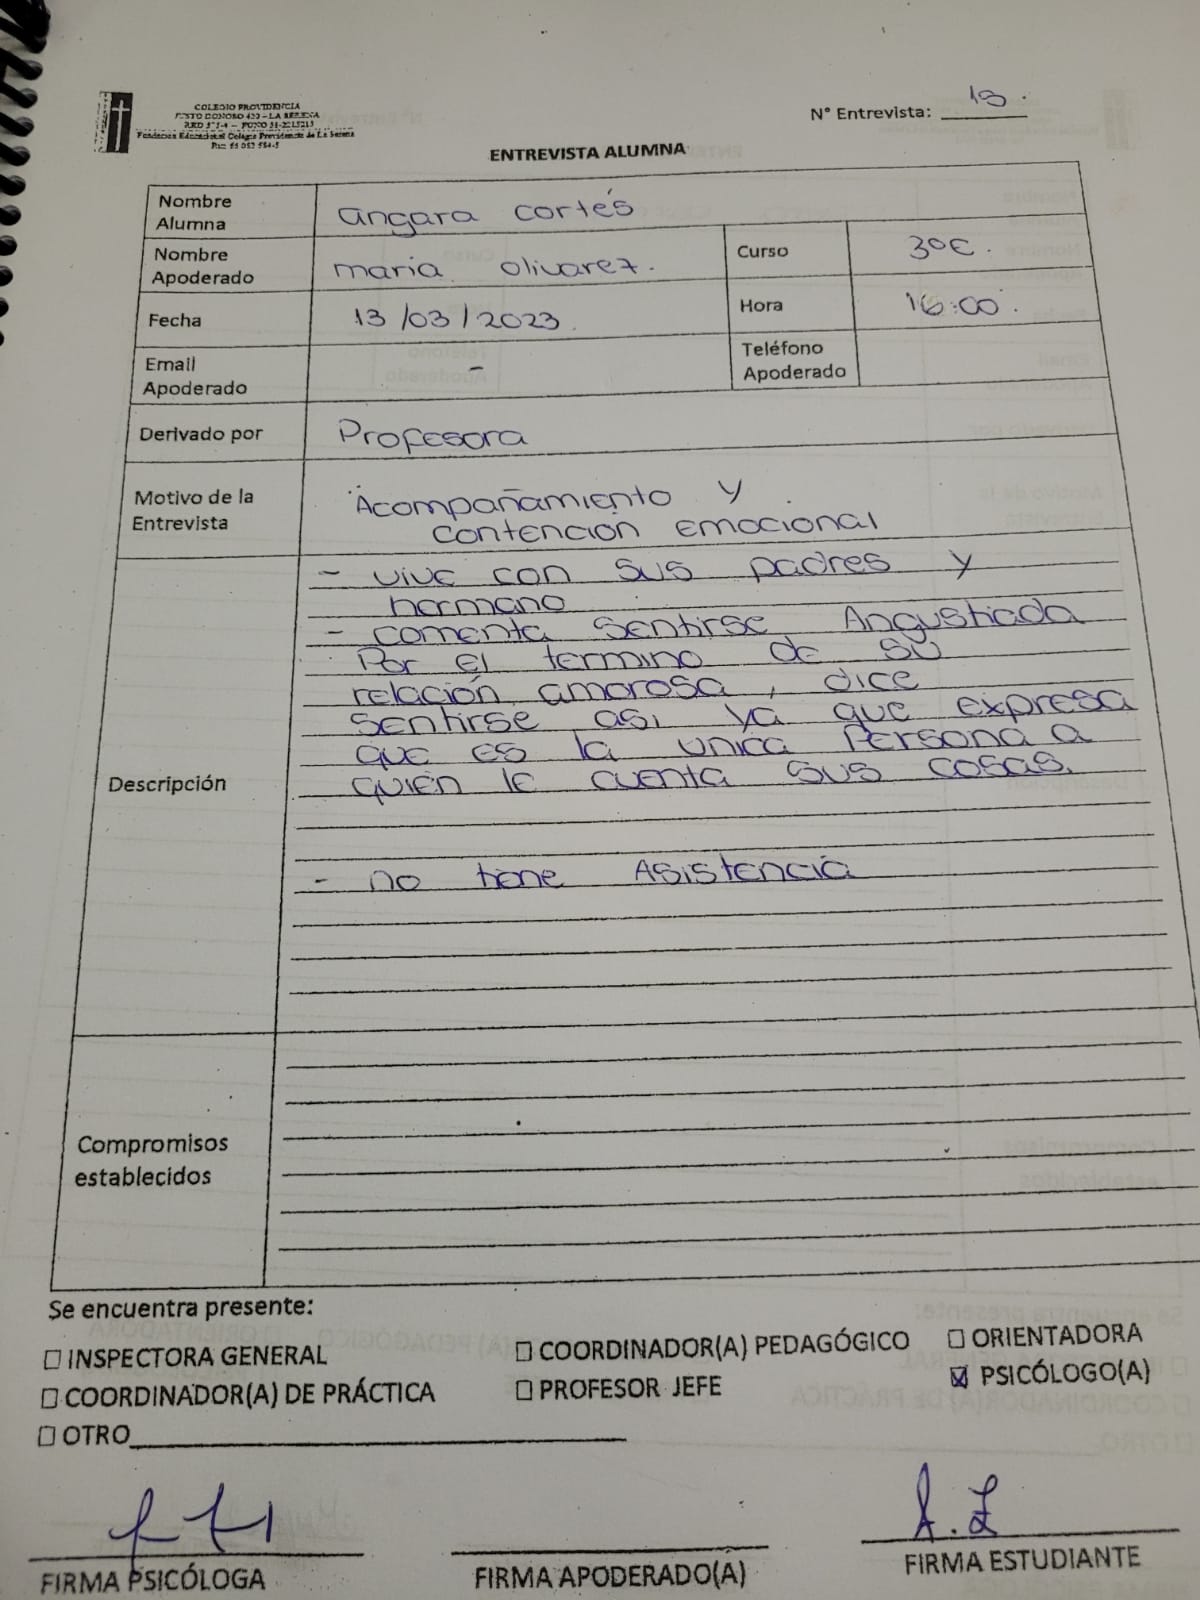 COLEGIO PROVIDENCIA
Fundación Educacional Colegio Providencia de La Serena
N° Entrevista: 19
ENTREVISTA ALUMNA
Nombre Alumna
angara cortés
Nombre Apoderado
maria olivarez.
Curso
3°E.
Fecha
13/03/2023
Hora
16:00
Email Apoderado
-
Teléfono Apoderado
Derivado por
Profesora
Motivo de la Entrevista
Acompañamiento y
contención emocional
Descripción
- vive con sus padres y
hermano
- comenta sentirse Angustiada
Por el termino de su
relación amorosa, dice
sentirse asi ya que expresa
que es la unica Persona a
quién le cuenta sus cosas.
- no tiene Asistencia
Compromisos establecidos
Se encuentra presente:
☐ INSPECTORA GENERAL ☐ COORDINADOR(A) PEDAGÓGICO ☐ ORIENTADORA
☐ COORDINADOR(A) DE PRÁCTICA ☐ PROFESOR JEFE ☒ PSICÓLOGO(A)
☐ OTRO
A. Z
FIRMA PSICÓLOGA FIRMA APODERADO(A) FIRMA ESTUDIANTE